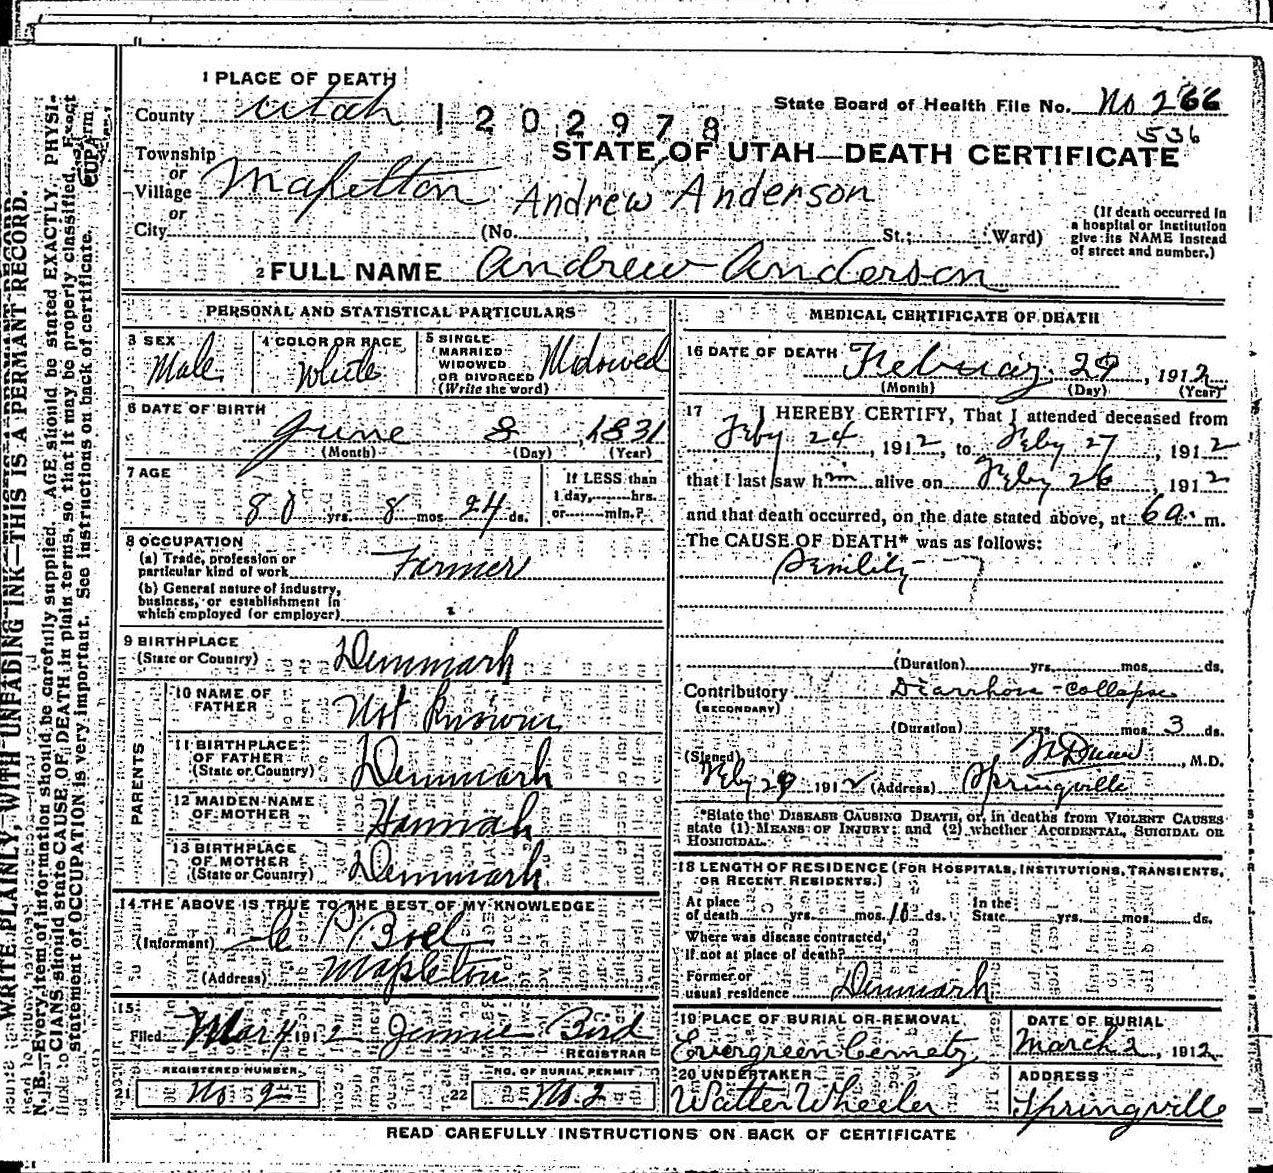 1 PLACE OF DEATH
County Utah 1202978
State Board of Health File No. No 266
536
STATE OF UTAH—DEATH CERTIFICATE
Township
or
Village Mapelton
or
City
Andrew Anderson
(No. , St.; Ward)
(If death occurred in
a hospital or institution
give its NAME instead
of street and number.)
2 FULL NAME Andrew Anderson
PERSONAL AND STATISTICAL PARTICULARS
3 SEX
Male
4 COLOR OR RACE
White
5 SINGLE
MARRIED
WIDOWED
OR DIVORCED
(Write the word)
Widowed
6 DATE OF BIRTH
June 8, 1831
(Month) (Day) (Year)
7 AGE
80 yrs. 8 mos. 24 ds.
If LESS than
1 day, hrs.
or min.?
8 OCCUPATION
(a) Trade, profession or
particular kind of work Farmer
(b) General nature of industry,
business, or establishment in
which employed (or employer)
9 BIRTHPLACE
(State or Country) Denmark
PARENTS
10 NAME OF
FATHER Not Known
11 BIRTHPLACE
OF FATHER
(State or Country) Denmark
12 MAIDEN NAME
OF MOTHER Hannah
13 BIRTHPLACE
OF MOTHER
(State or Country) Denmark
14 THE ABOVE IS TRUE TO THE BEST OF MY KNOWLEDGE
(Informant) P Boel
(Address) Mapleton
15
Filed Mar 4 1912 Jennie Bird
REGISTRAR
REGISTERED NUMBER
21 No 9
NO. OF BURIAL PERMIT
22 No. 2
MEDICAL CERTIFICATE OF DEATH
16 DATE OF DEATH
Februay 29, 1912
(Month) (Day) (Year)
17 I HEREBY CERTIFY, That I attended deceased from
Feby 24, 1912, to Feby 27, 1912
that I last saw him alive on Feby 26, 1912
and that death occurred, on the date stated above, at 6 a. m.
The CAUSE OF DEATH* was as follows:
Senility
(Duration) yrs. mos. ds.
Contributory Diarrhoea - Collapse
(SECONDARY)
(Duration) yrs. mos. 3 ds.
(Signed) Dunn, M.D.
Feby 29 1912 (Address) Springville
*State the DISEASE CAUSING DEATH, or, in deaths from VIOLENT CAUSES
state (1) MEANS OF INJURY; and (2) whether ACCIDENTAL, SUICIDAL OR
HOMICIDAL.
18 LENGTH OF RESIDENCE (FOR HOSPITALS, INSTITUTIONS, TRANSIENTS,
OR RECENT RESIDENTS.)
At place
of death yrs. mos. 10 ds.
In the
State yrs. mos. ds.
Where was disease contracted,
If not at place of death?
Former or
usual residence Denmark
19 PLACE OF BURIAL OR REMOVAL
Evergreen Cemetry
DATE OF BURIAL
March 2, 1912
20 UNDERTAKER
Walter Wheeler
ADDRESS
Springville
READ CAREFULLY INSTRUCTIONS ON BACK OF CERTIFICATE
WRITE PLAINLY, WITH UNFADING INK—THIS IS A PERMANT RECORD.
N. B.—Every item of information should be carefully supplied. AGE should be stated EXACTLY. PHYSI-
CIANS should state CAUSE OF DEATH in plain terms, so that it may be properly classified. Exact
statement of OCCUPATION is very important. See instructions on back of certificate.